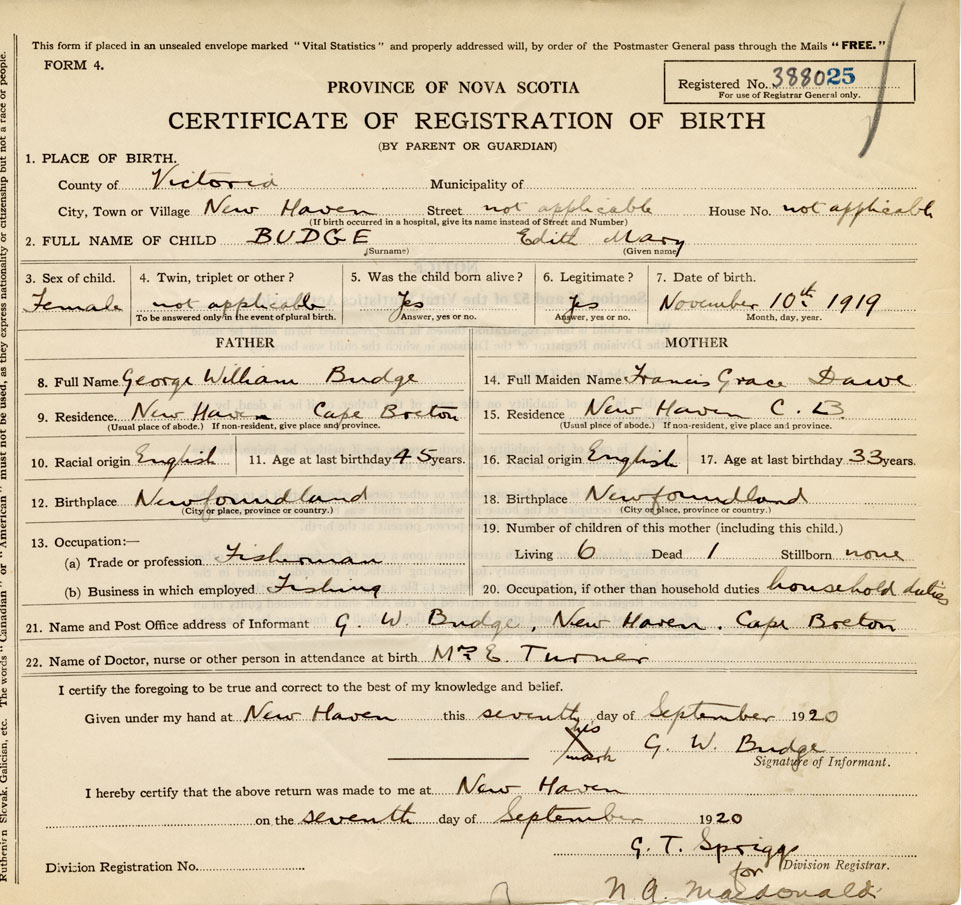 This form if placed in an unsealed envelope marked "Vital Statistics" and properly addressed will, by order of the Postmaster General pass through the Mails "FREE."
FORM 4.
Registered No. 388025
For use of Registrar General only.
PROVINCE OF NOVA SCOTIA
CERTIFICATE OF REGISTRATION OF BIRTH
(BY PARENT OR GUARDIAN)
1. PLACE OF BIRTH.
County of Victoria Municipality of
City, Town or Village New Haven Street not applicable House No. not applicable
(If birth occurred in a hospital, give its name instead of Street and Number)
2. FULL NAME OF CHILD BUDGE Edith Mary
(Surname) (Given name)
3. Sex of child. 4. Twin, triplet or other? 5. Was the child born alive? 6. Legitimate? 7. Date of birth.
Female not applicable Yes Yes November 10th 1919
To be answered only in the event of plural birth. Answer, yes or no. Answer, yes or no. Month, day, year.
FATHER MOTHER
8. Full Name George William Budge 14. Full Maiden Name Francis Grace Dawe
9. Residence New Haven Cape Breton 15. Residence New Haven C. B.
(Usual place of abode.) If non-resident, give place and province. (Usual place of abode.) If non-resident, give place and province.
10. Racial origin English 11. Age at last birthday 45 years. 16. Racial origin English 17. Age at last birthday 33 years.
12. Birthplace Newfoundland 18. Birthplace Newfoundland
(City or place, province or country.) (City or place, province or country.)
13. Occupation:— 19. Number of children of this mother (including this child.)
(a) Trade or profession Fisherman Living 6 Dead 1 Stillborn none
(b) Business in which employed Fishing 20. Occupation, if other than household duties household duties
21. Name and Post Office address of Informant G. W. Budge, New Haven. Cape Breton
22. Name of Doctor, nurse or other person in attendance at birth Mrs E. Turner
I certify the foregoing to be true and correct to the best of my knowledge and belief.
Given under my hand at New Haven this seventh day of September 1920
his X mark G. W. Budge
Signature of Informant.
I hereby certify that the above return was made to me at New Haven
on the seventh day of September 1920
G. T. Spriggs
Division Registration No. for Division Registrar.
N. A. Macdonald
Ruthenian Slovak, Galician, etc. The words "Canadian" or "American" must not be used, as they express nationality or citizenship but not a race or people.